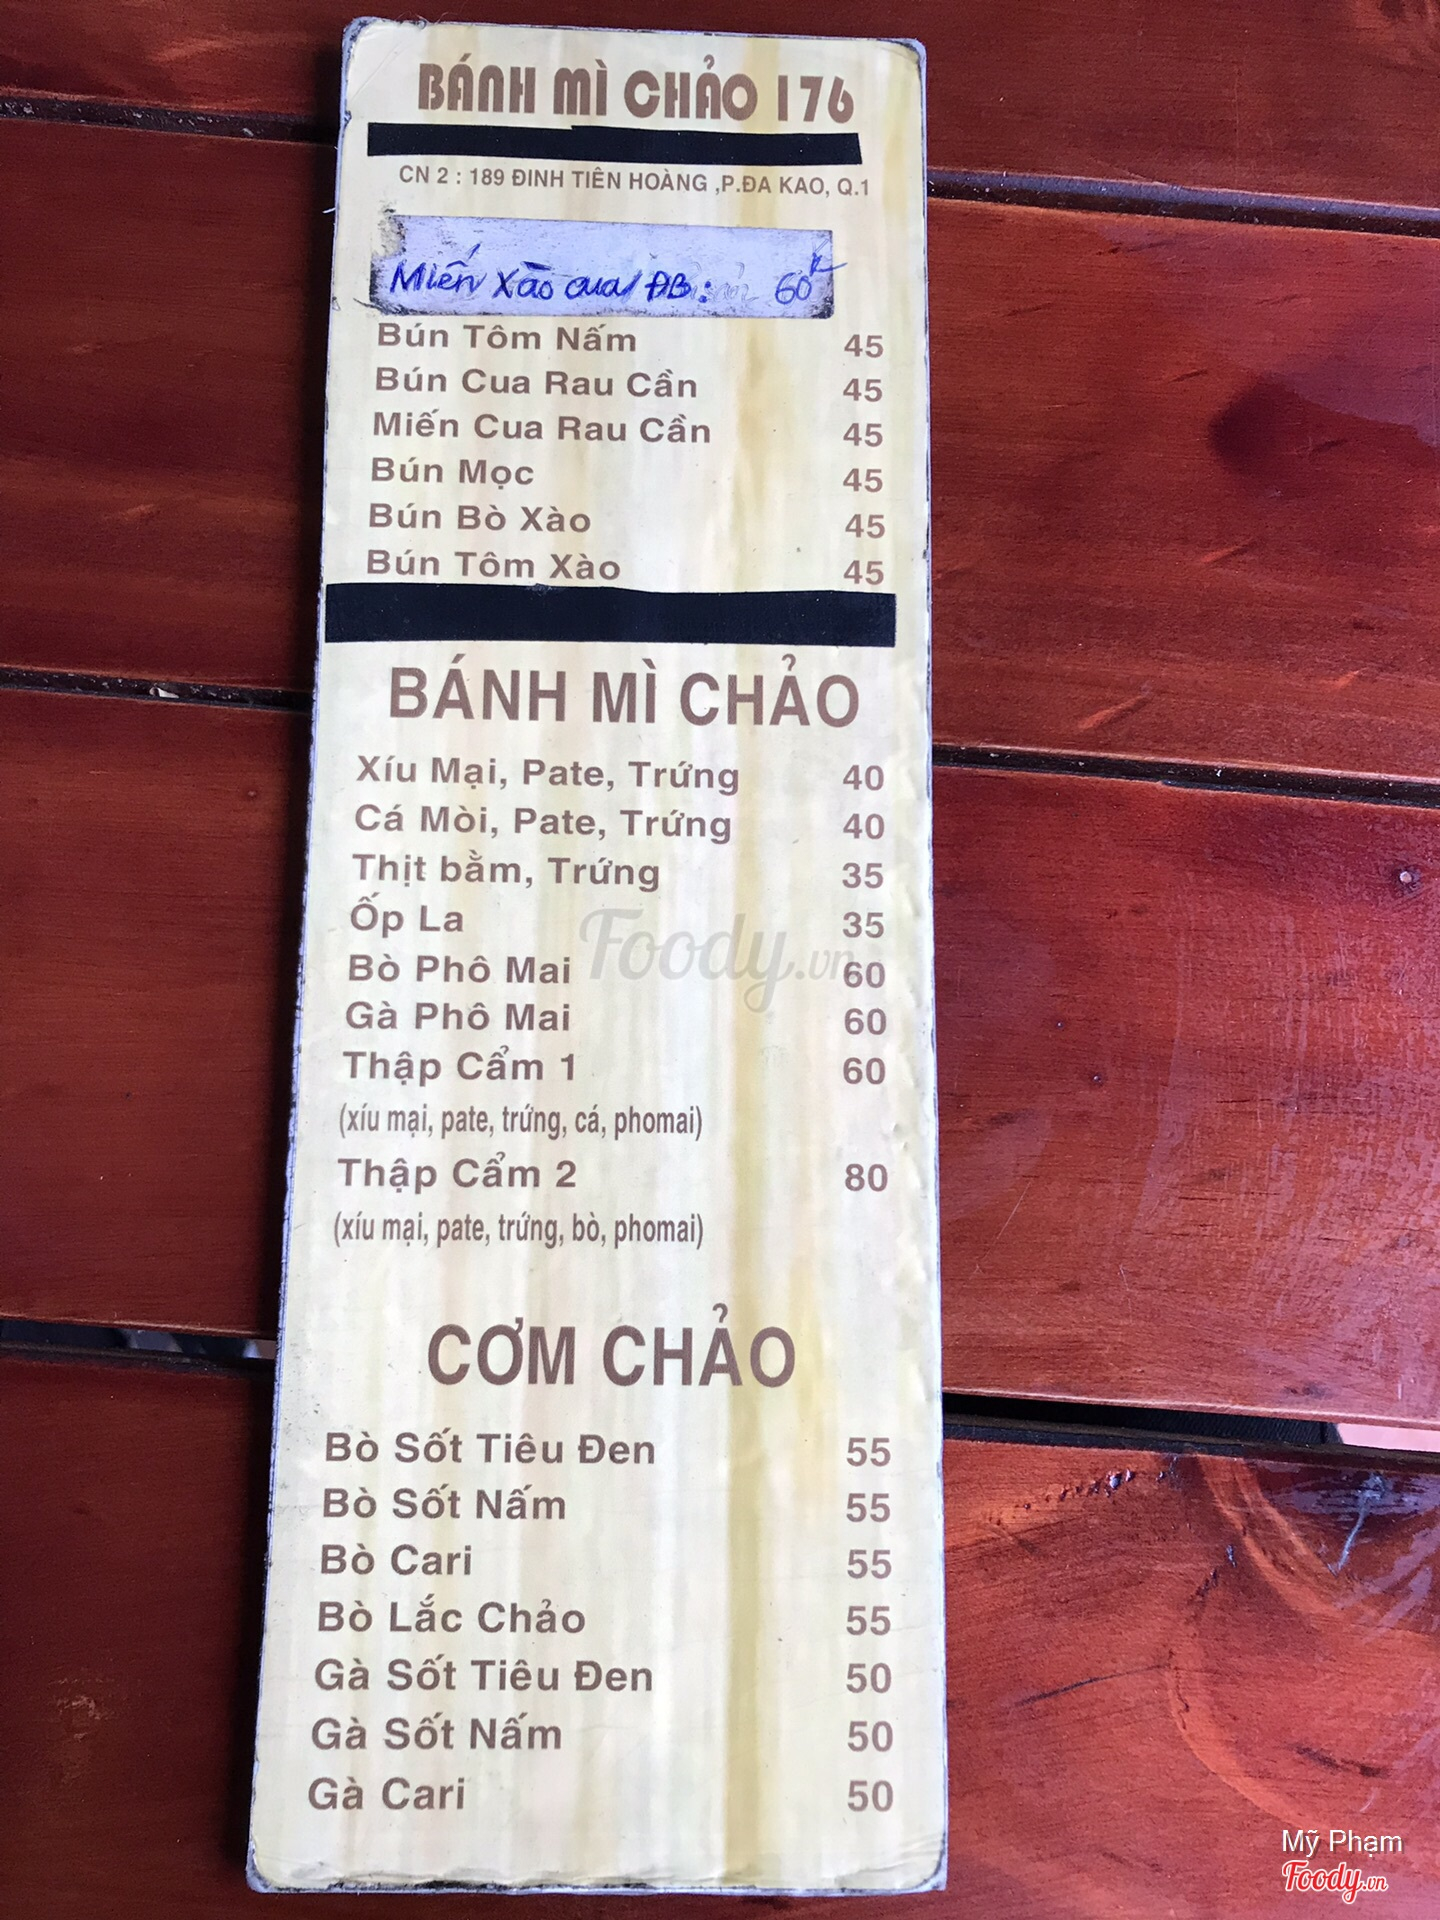 BÁNH MÌ CHẢO 176
CN 2 : 189 ĐINH TIÊN HOÀNG ,P.ĐA KAO, Q.1
Miến Xào cua ĐB: 60K
Bún Tôm Nấm 45
Bún Cua Rau Cần 45
Miến Cua Rau Cần 45
Bún Mọc 45
Bún Bò Xào 45
Bún Tôm Xào 45
BÁNH MÌ CHẢO
Xíu Mại, Pate, Trứng 40
Cá Mòi, Pate, Trứng 40
Thịt bằm, Trứng 35
Ốp La 35
Foody.vn
Bò Phô Mai 60
Gà Phô Mai 60
Thập Cẩm 1 60
(xíu mại, pate, trứng, cá, phomai)
Thập Cẩm 2 80
(xíu mại, pate, trứng, bò, phomai)
CƠM CHẢO
Bò Sốt Tiêu Đen 55
Bò Sốt Nấm 55
Bò Cari 55
Bò Lắc Chảo 55
Gà Sốt Tiêu Đen 50
Gà Sốt Nấm 50
Gà Cari 50
Mỹ Phạm
Foody.vn